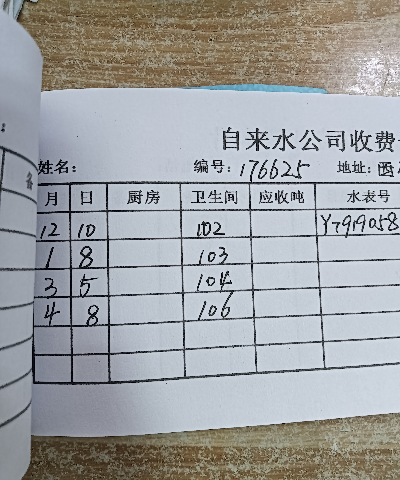 自来水公司收费
姓名： 编号：176625 地址：西
月 日 厨房 卫生间 应收吨 水表号
12 10 102
1 8 103
3 5 104
4 8 106